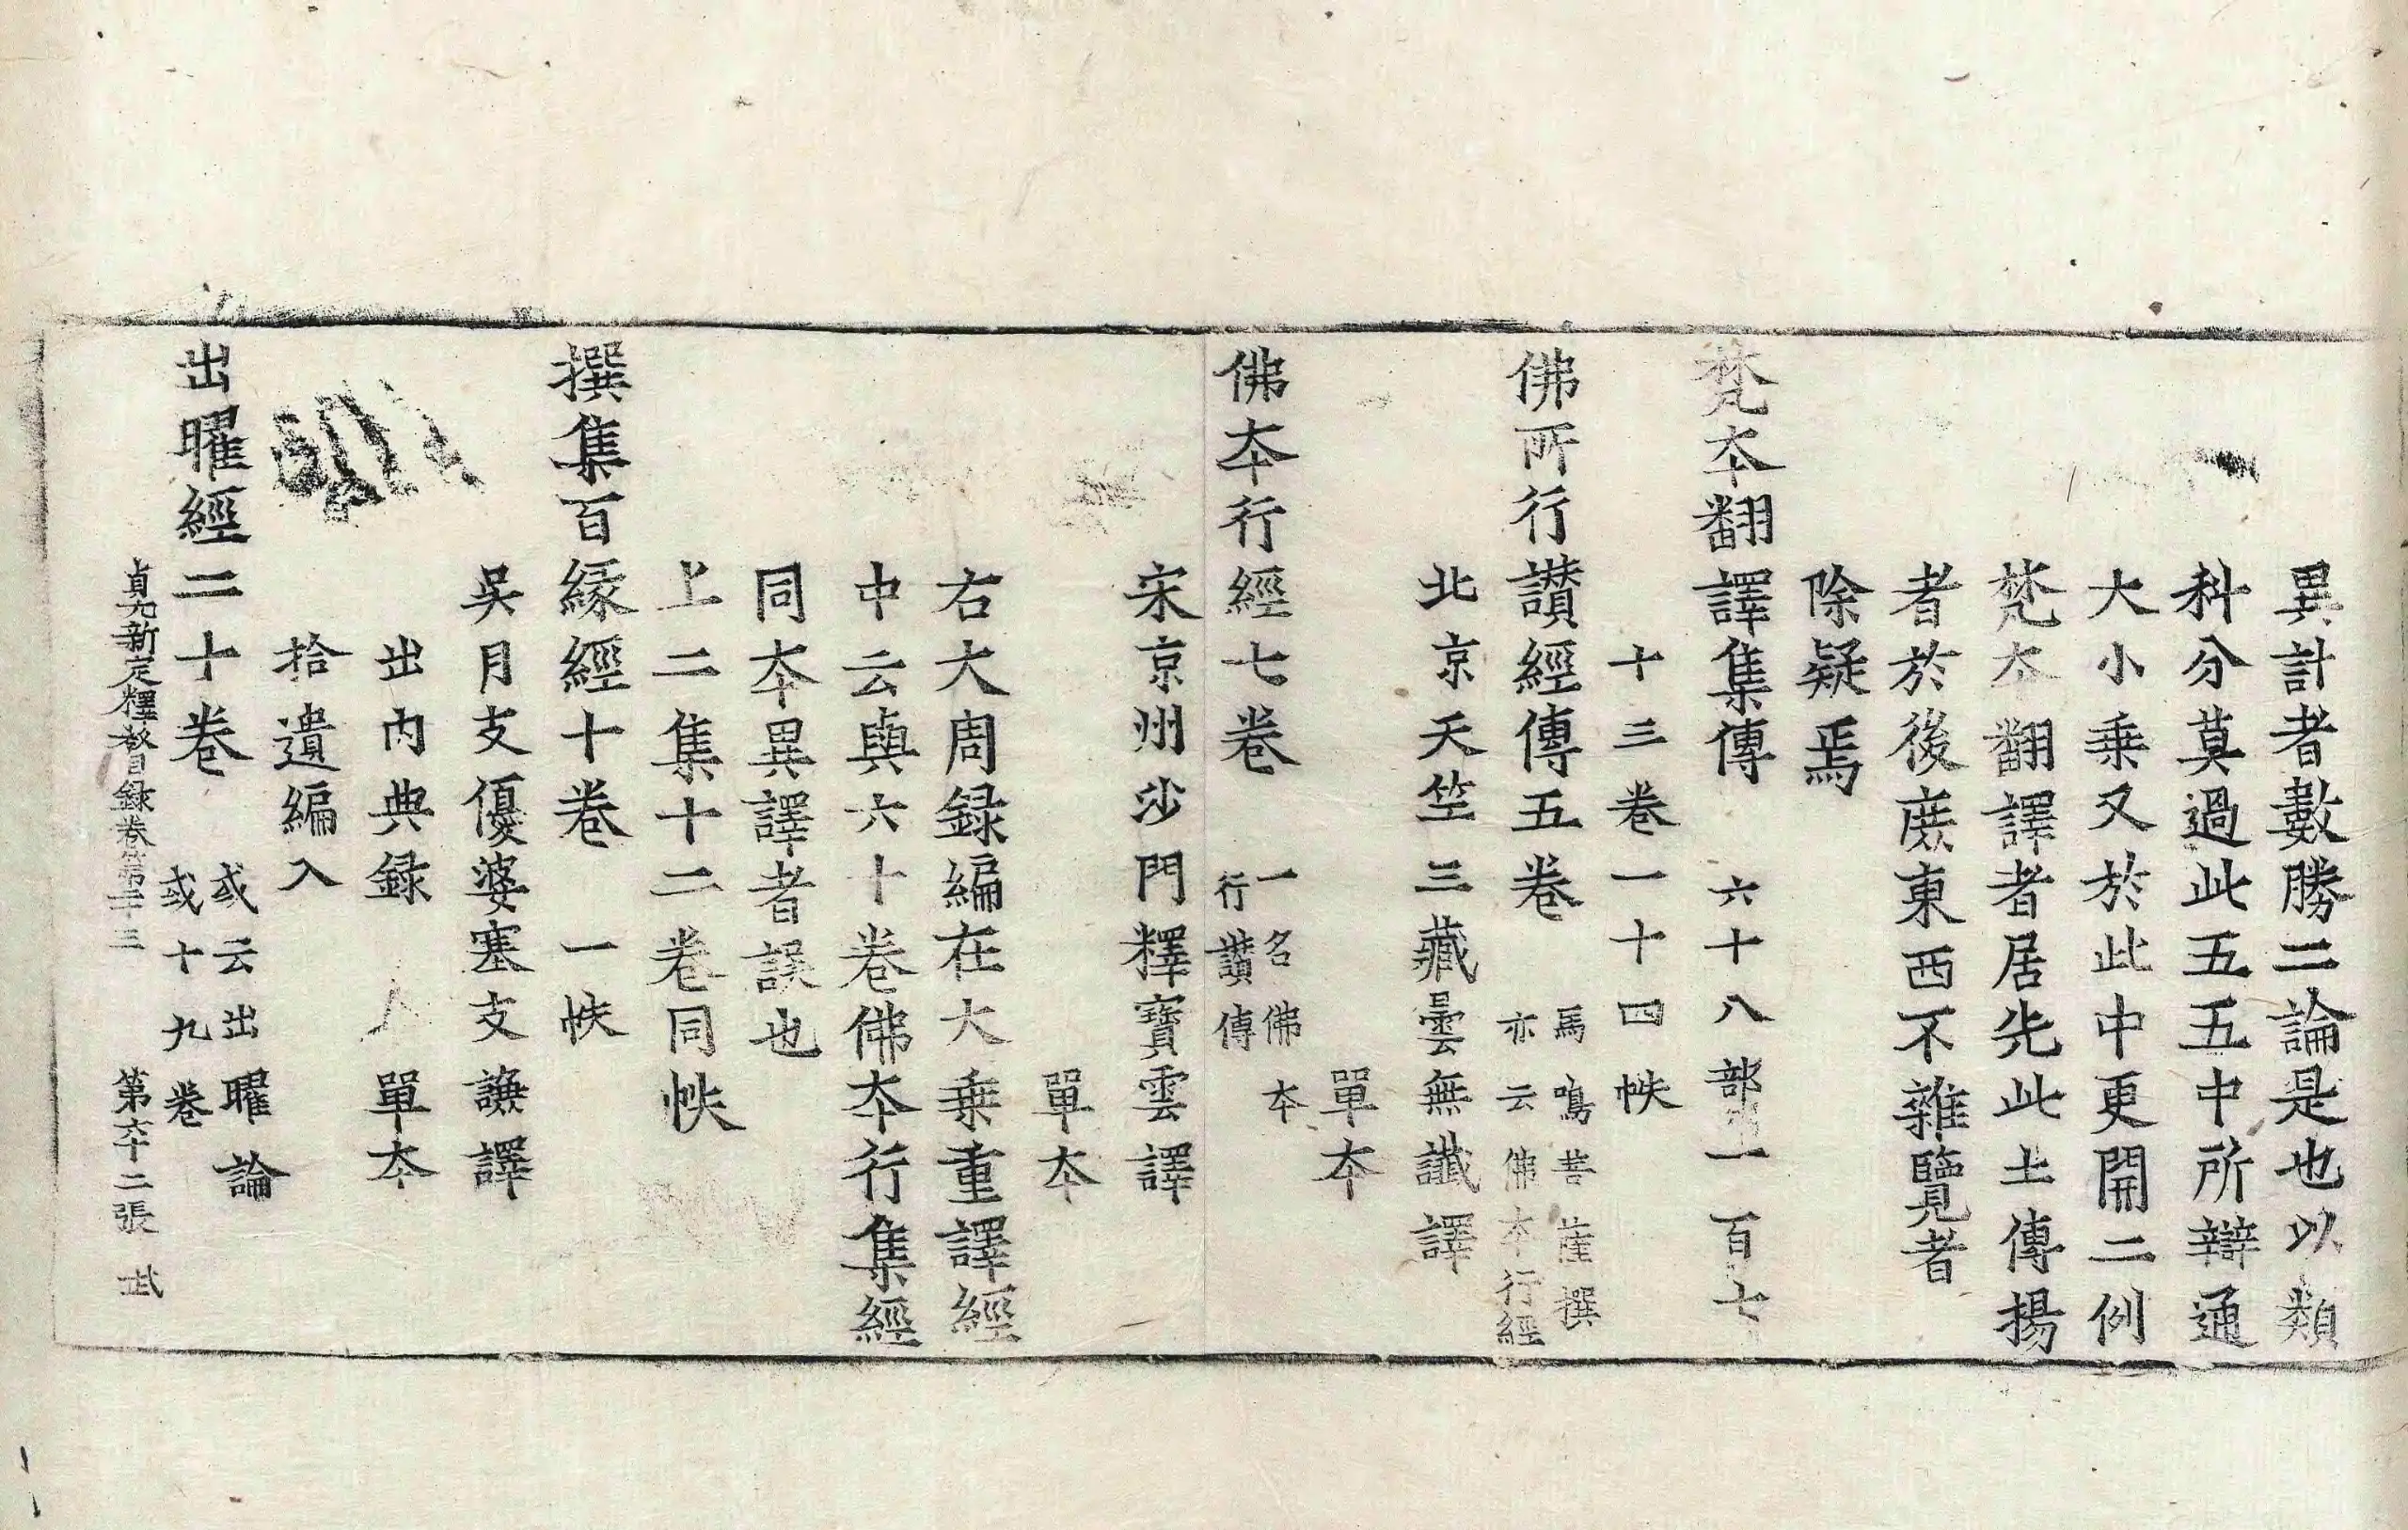 異計者數勝二論是也以類
科分莫過此五五中所辯通
大小乗又於此中更開二例
梵夲翻譯者居先此土傳揚
者於後庻東西不雜覽者
除疑焉
梵夲翻譯集傳 六十八部一百七
十三卷一十四帙
佛所行讃經傳五卷 馬鳴菩薩撰
亦云佛夲行經
北京天竺三藏曇無讖譯
單夲
佛夲行經七卷 一名佛夲
行讃傳
宋京州沙門釋寶雲譯
單夲
右大周録編在大乗重譯經
中云與六十卷佛夲行集經
同夲異譯者誤也
上二集十二卷同帙
撰集百縁經十卷 一帙
吳月支優婆塞支謙譯
出內典録 單夲
拾遺編入
出曜經二十卷 或云出曜論
或十九卷
貞元新定釋教目録卷第二十三 第六十二張 武